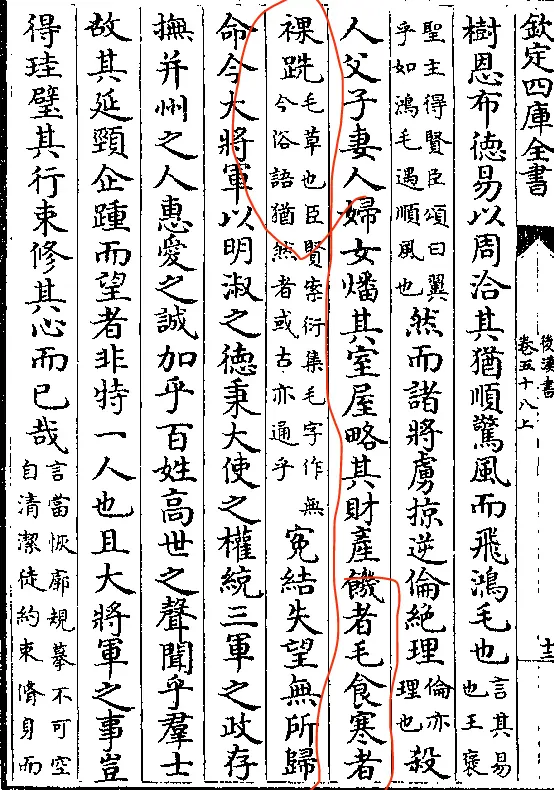 欽定四庫全書
後漢書
卷五十八上
十三
樹恩布德易以周洽其猶順驚風而飛鴻毛也言其易也王褒
聖主得賢臣頌曰翼乎如鴻毛遇順風也然而諸將虜掠逆倫絶理倫亦理也殺
人父子妻人婦女燔其室屋略其財產饑者毛食寒者
裸跣毛草也臣賢案衍集毛字作無今俗語猶然者或古亦通乎寃結失望無所歸
命今大將軍以明淑之德秉大使之權統三軍之政存
撫并州之人惠愛之誠加乎百姓高世之聲聞乎羣士
故其延頸企踵而望者非特一人也且大將軍之事豈
得珪璧其行束修其心而已哉言當恢廓規摹不可空自清潔徒約束脩身而